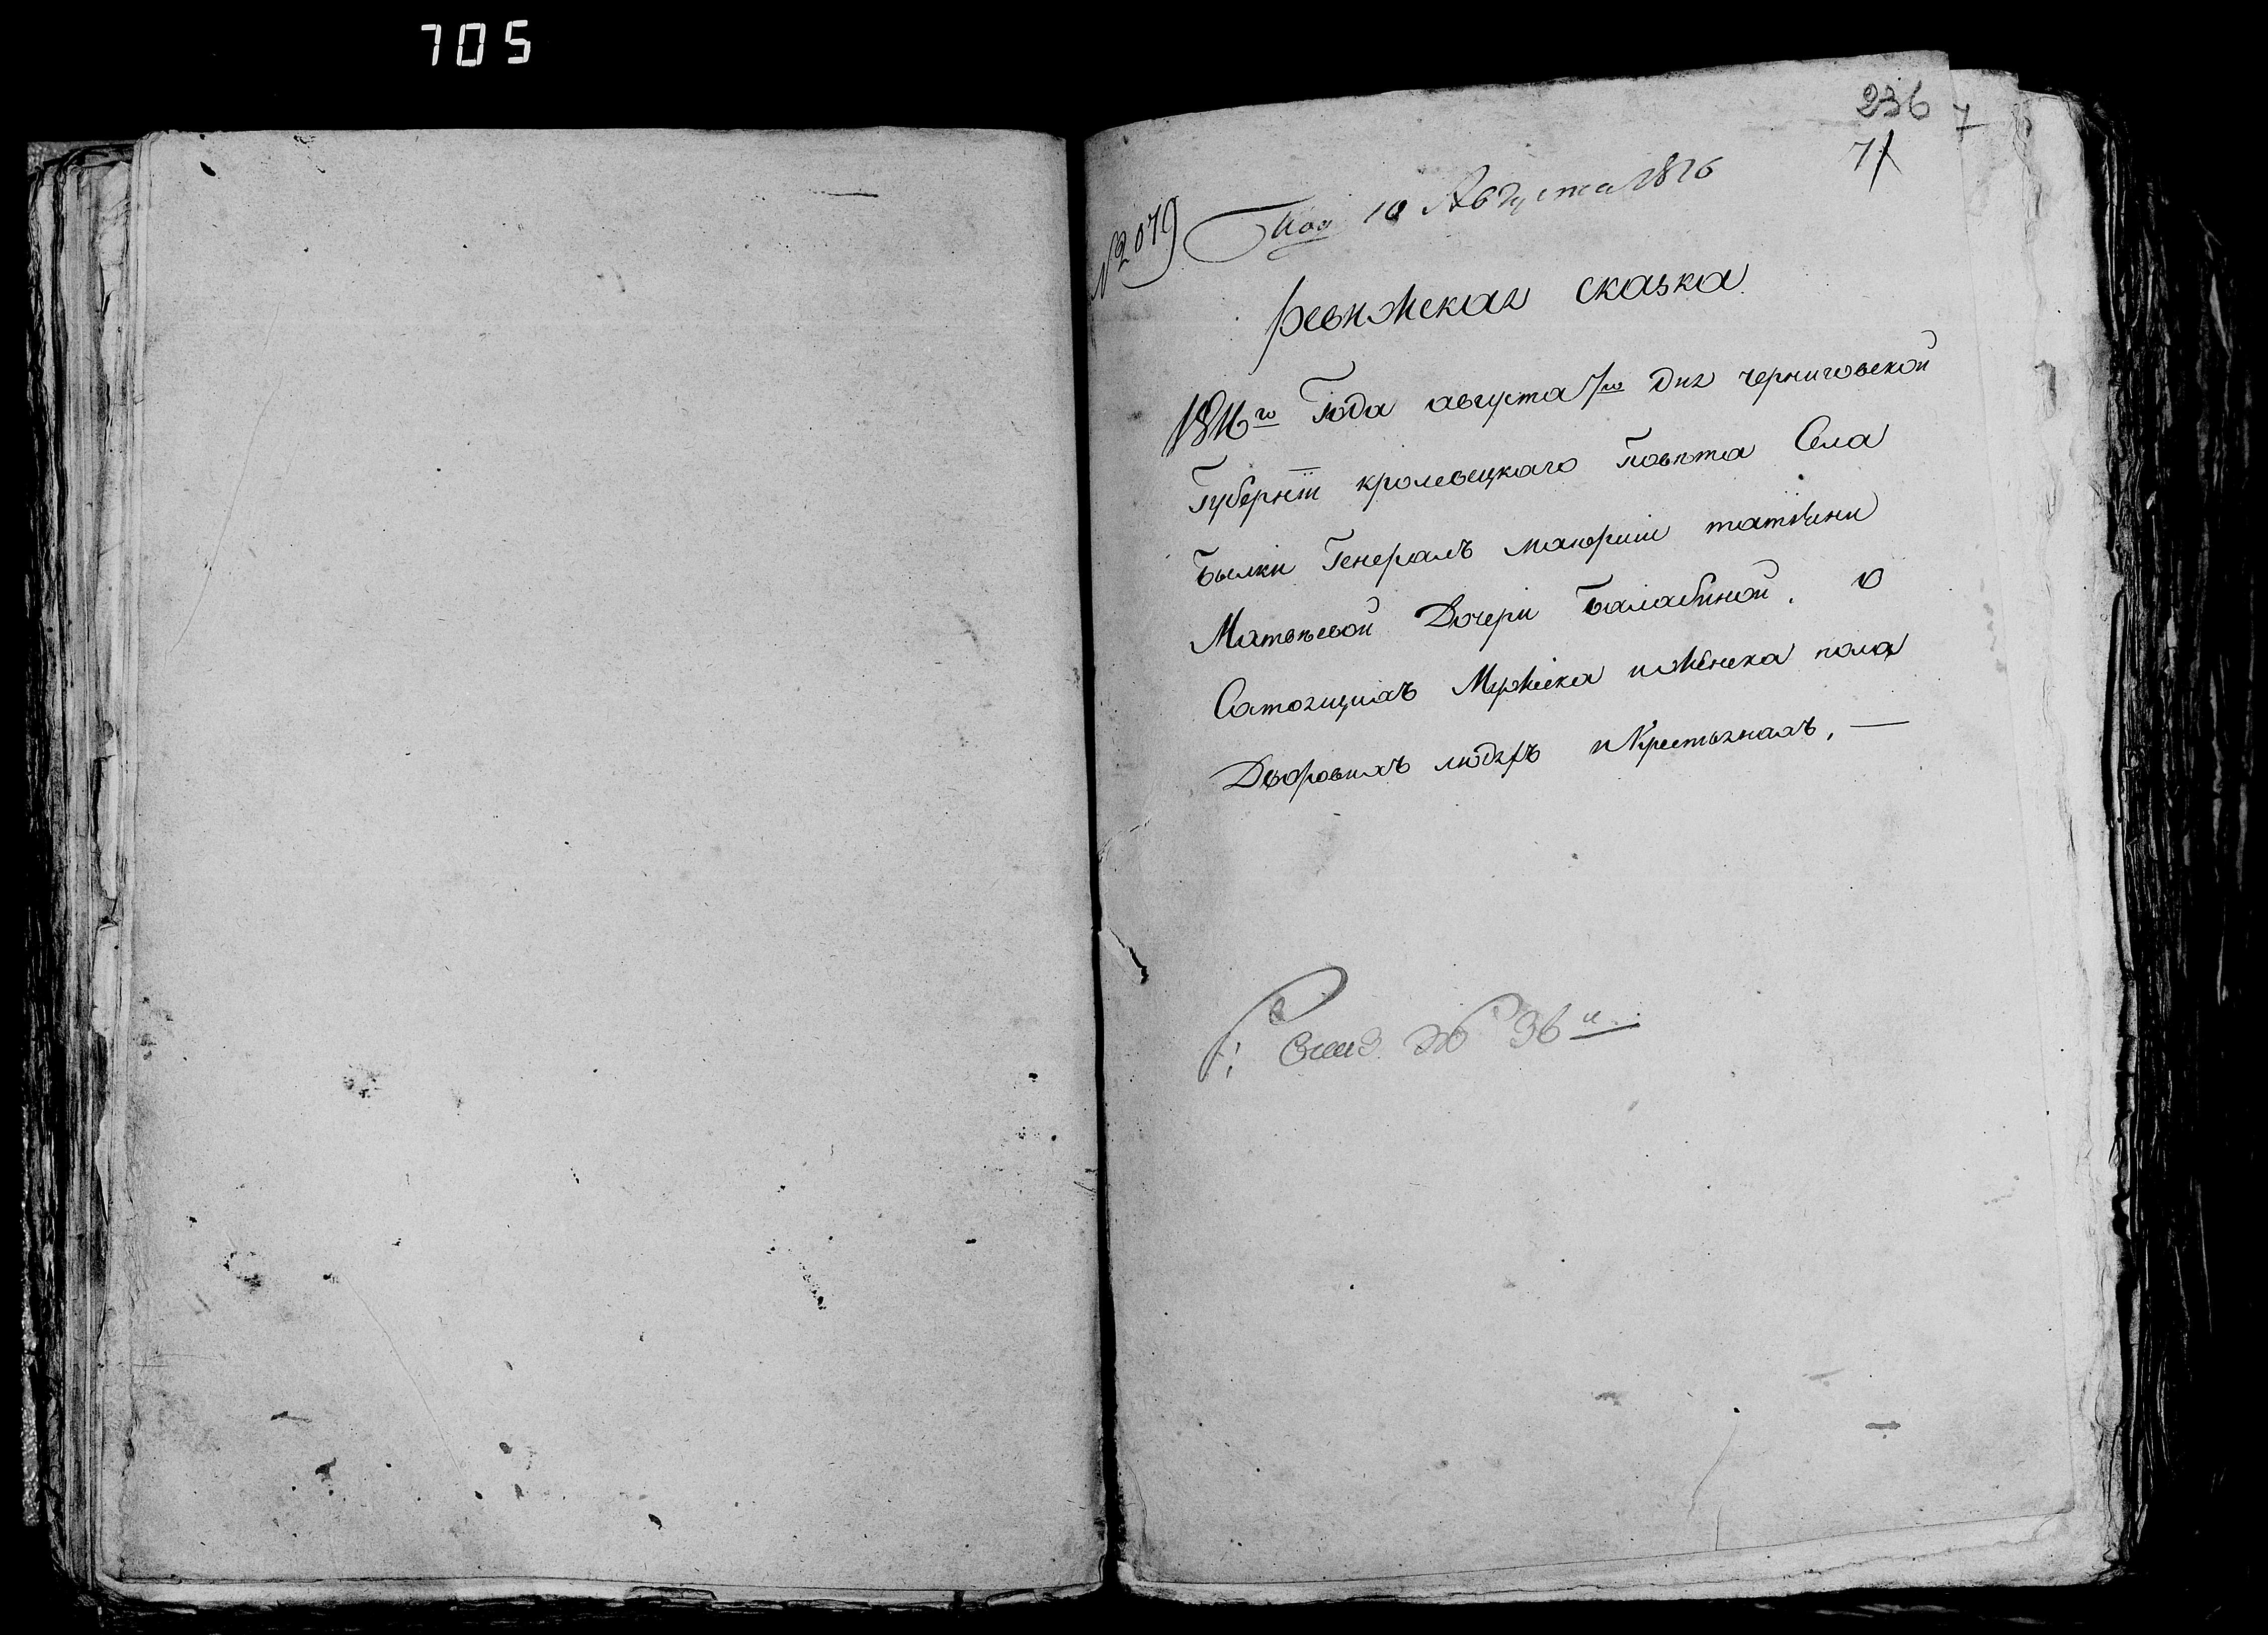 705
236
7
71
№ 2079
Под 10 Августа 1816
ревижская сказка
1816го Года августа 7го дня черниговской
Губернїи кролевецкаго Повѣта Села
Былки Генералъ маиорши татїяни
Матвѣевой Дочери Балабиной, о
Састоящихъ Мужеска и женска пола
Дворовихъ людяхъ и Крестьянахъ, —
№ 36й